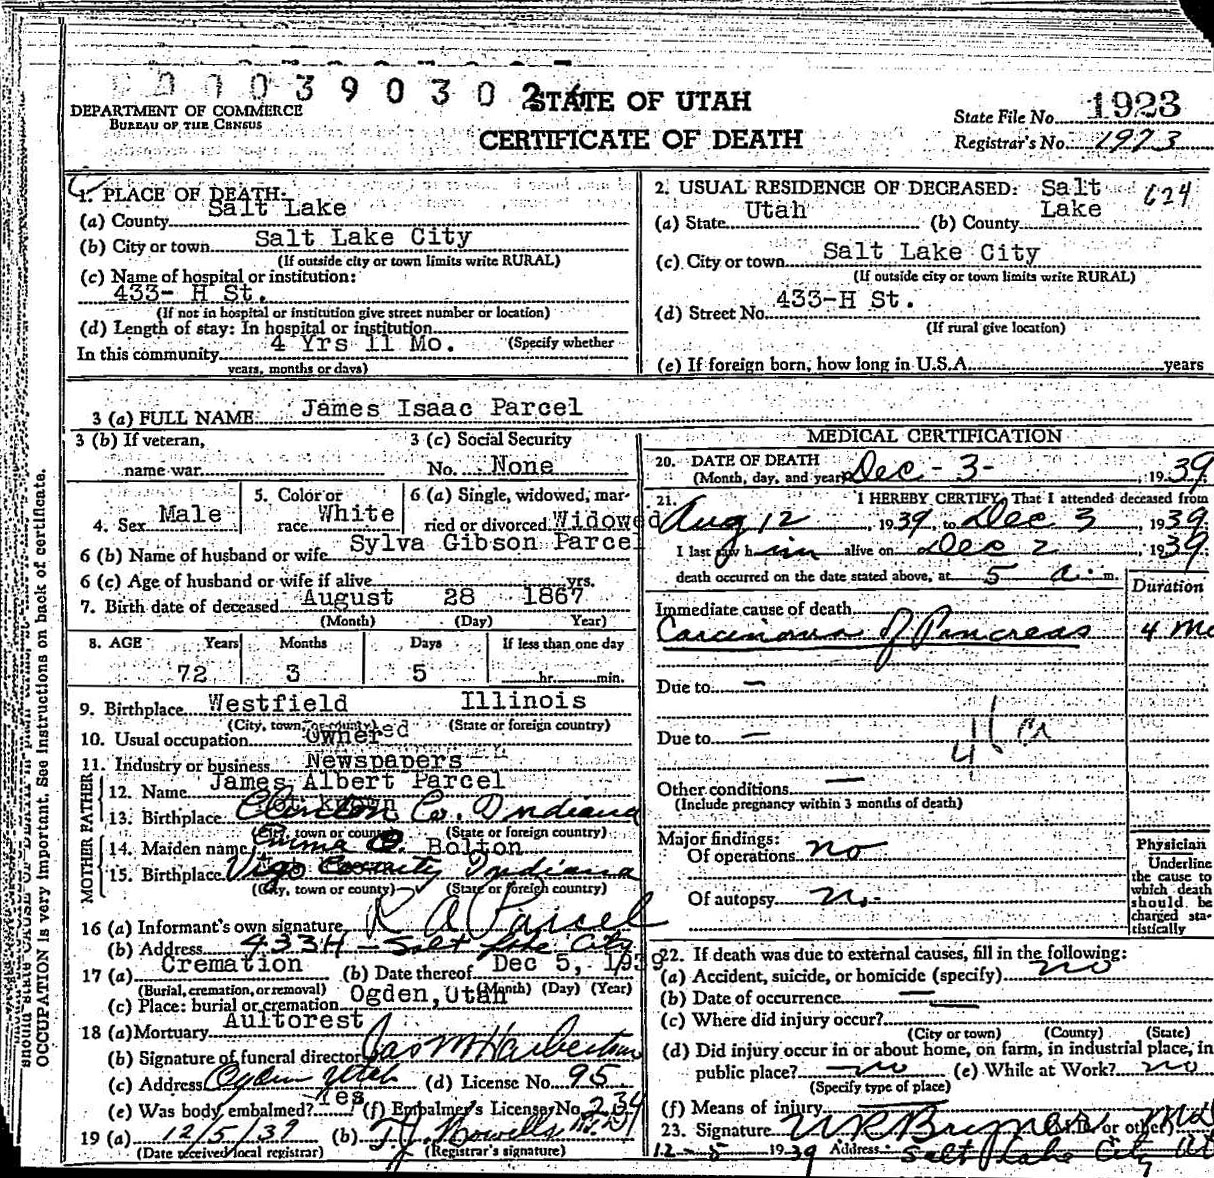 0 0 0 3 9 0 3 0 2
STATE OF UTAH
CERTIFICATE OF DEATH
DEPARTMENT OF COMMERCE
BUREAU OF THE CENSUS
State File No. 1923
Registrar's No. 1923
1. PLACE OF DEATH:
(a) County Salt Lake
(b) City or town Salt Lake City
(If outside city or town limits write RURAL)
(c) Name of hospital or institution:
433- H St.
(If not in hospital or institution give street number or location)
(d) Length of stay: In hospital or institution
In this community 4 Yrs 11 Mo. (Specify whether
years, months or days)
2. USUAL RESIDENCE OF DECEASED: 624
(a) State Utah (b) County Salt Lake
(c) City or town Salt Lake City
(If outside city or town limits write RURAL)
(d) Street No. 433-H St.
(If rural give location)
(e) If foreign born, how long in U.S.A. years
3 (a) FULL NAME James Isaac Parcel
3 (b) If veteran, name war
3 (c) Social Security No. None
4. Sex Male
5. Color or race White
6 (a) Single, widowed, married or divorced Widowed
6 (b) Name of husband or wife Sylva Gibson Parcel
6 (c) Age of husband or wife if alive yrs.
7. Birth date of deceased August 28 1867
(Month) (Day) Year)
8. AGE Years Months Days If less than one day
72 3 5 hr. min.
9. Birthplace Westfield Illinois
(City, town or county) (State or foreign country)
10. Usual occupation Owner
11. Industry or business Newspapers
FATHER
12. Name James Albert Parcel
13. Birthplace Clinton Co. Indiana
(City, town or county) (State or foreign country)
MOTHER
14. Maiden name Emma Bolton
15. Birthplace Vigo County Indiana
(City, town or county) (State or foreign country)
16 (a) Informant's own signature R A Parcel
(b) Address 433 H - Salt Lake City
17 (a) Cremation (b) Date thereof Dec 5, 1939
(Burial, cremation, or removal) (Month) (Day) (Year)
(c) Place: burial or cremation Ogden, Utah
18 (a) Mortuary Aultorest
(b) Signature of funeral director
(c) Address Ogden Utah (d) License No. 95
(e) Was body embalmed? Yes (f) Embalmer's License No. 234
19 (a) 12/5/39 (b) T.J. Howells M.D.
(Date received local registrar) (Registrar's signature)
MEDICAL CERTIFICATION
20. DATE OF DEATH Dec - 3 - , 1939
(Month, day, and year)
21. I HEREBY CERTIFY, That I attended deceased from
Aug 12, 1939, to Dec 3 1939
I last saw h im alive on Dec 2, 1939
death occurred on the date stated above, at 5 a. m.
Duration
Immediate cause of death
Carcinoma of Pancreas 4 Mo
Due to —
Due to —
Other conditions —
(Include pregnancy within 3 months of death)
Major findings:
Of operations no
Of autopsy no
Physician
Underline the cause to which death should be charged statistically
22. If death was due to external causes, fill in the following:
(a) Accident, suicide, or homicide (specify) no
(b) Date of occurrence —
(c) Where did injury occur? —
(City or town) (County) (State)
(d) Did injury occur in or about home, on farm, in industrial place, in
public place? no (e) While at Work? no
(Specify type of place)
(f) Means of injury
23. Signature
12-5-1939 Address Salt Lake City Ut
OCCUPATION is very important. See instructions on back of certificate.